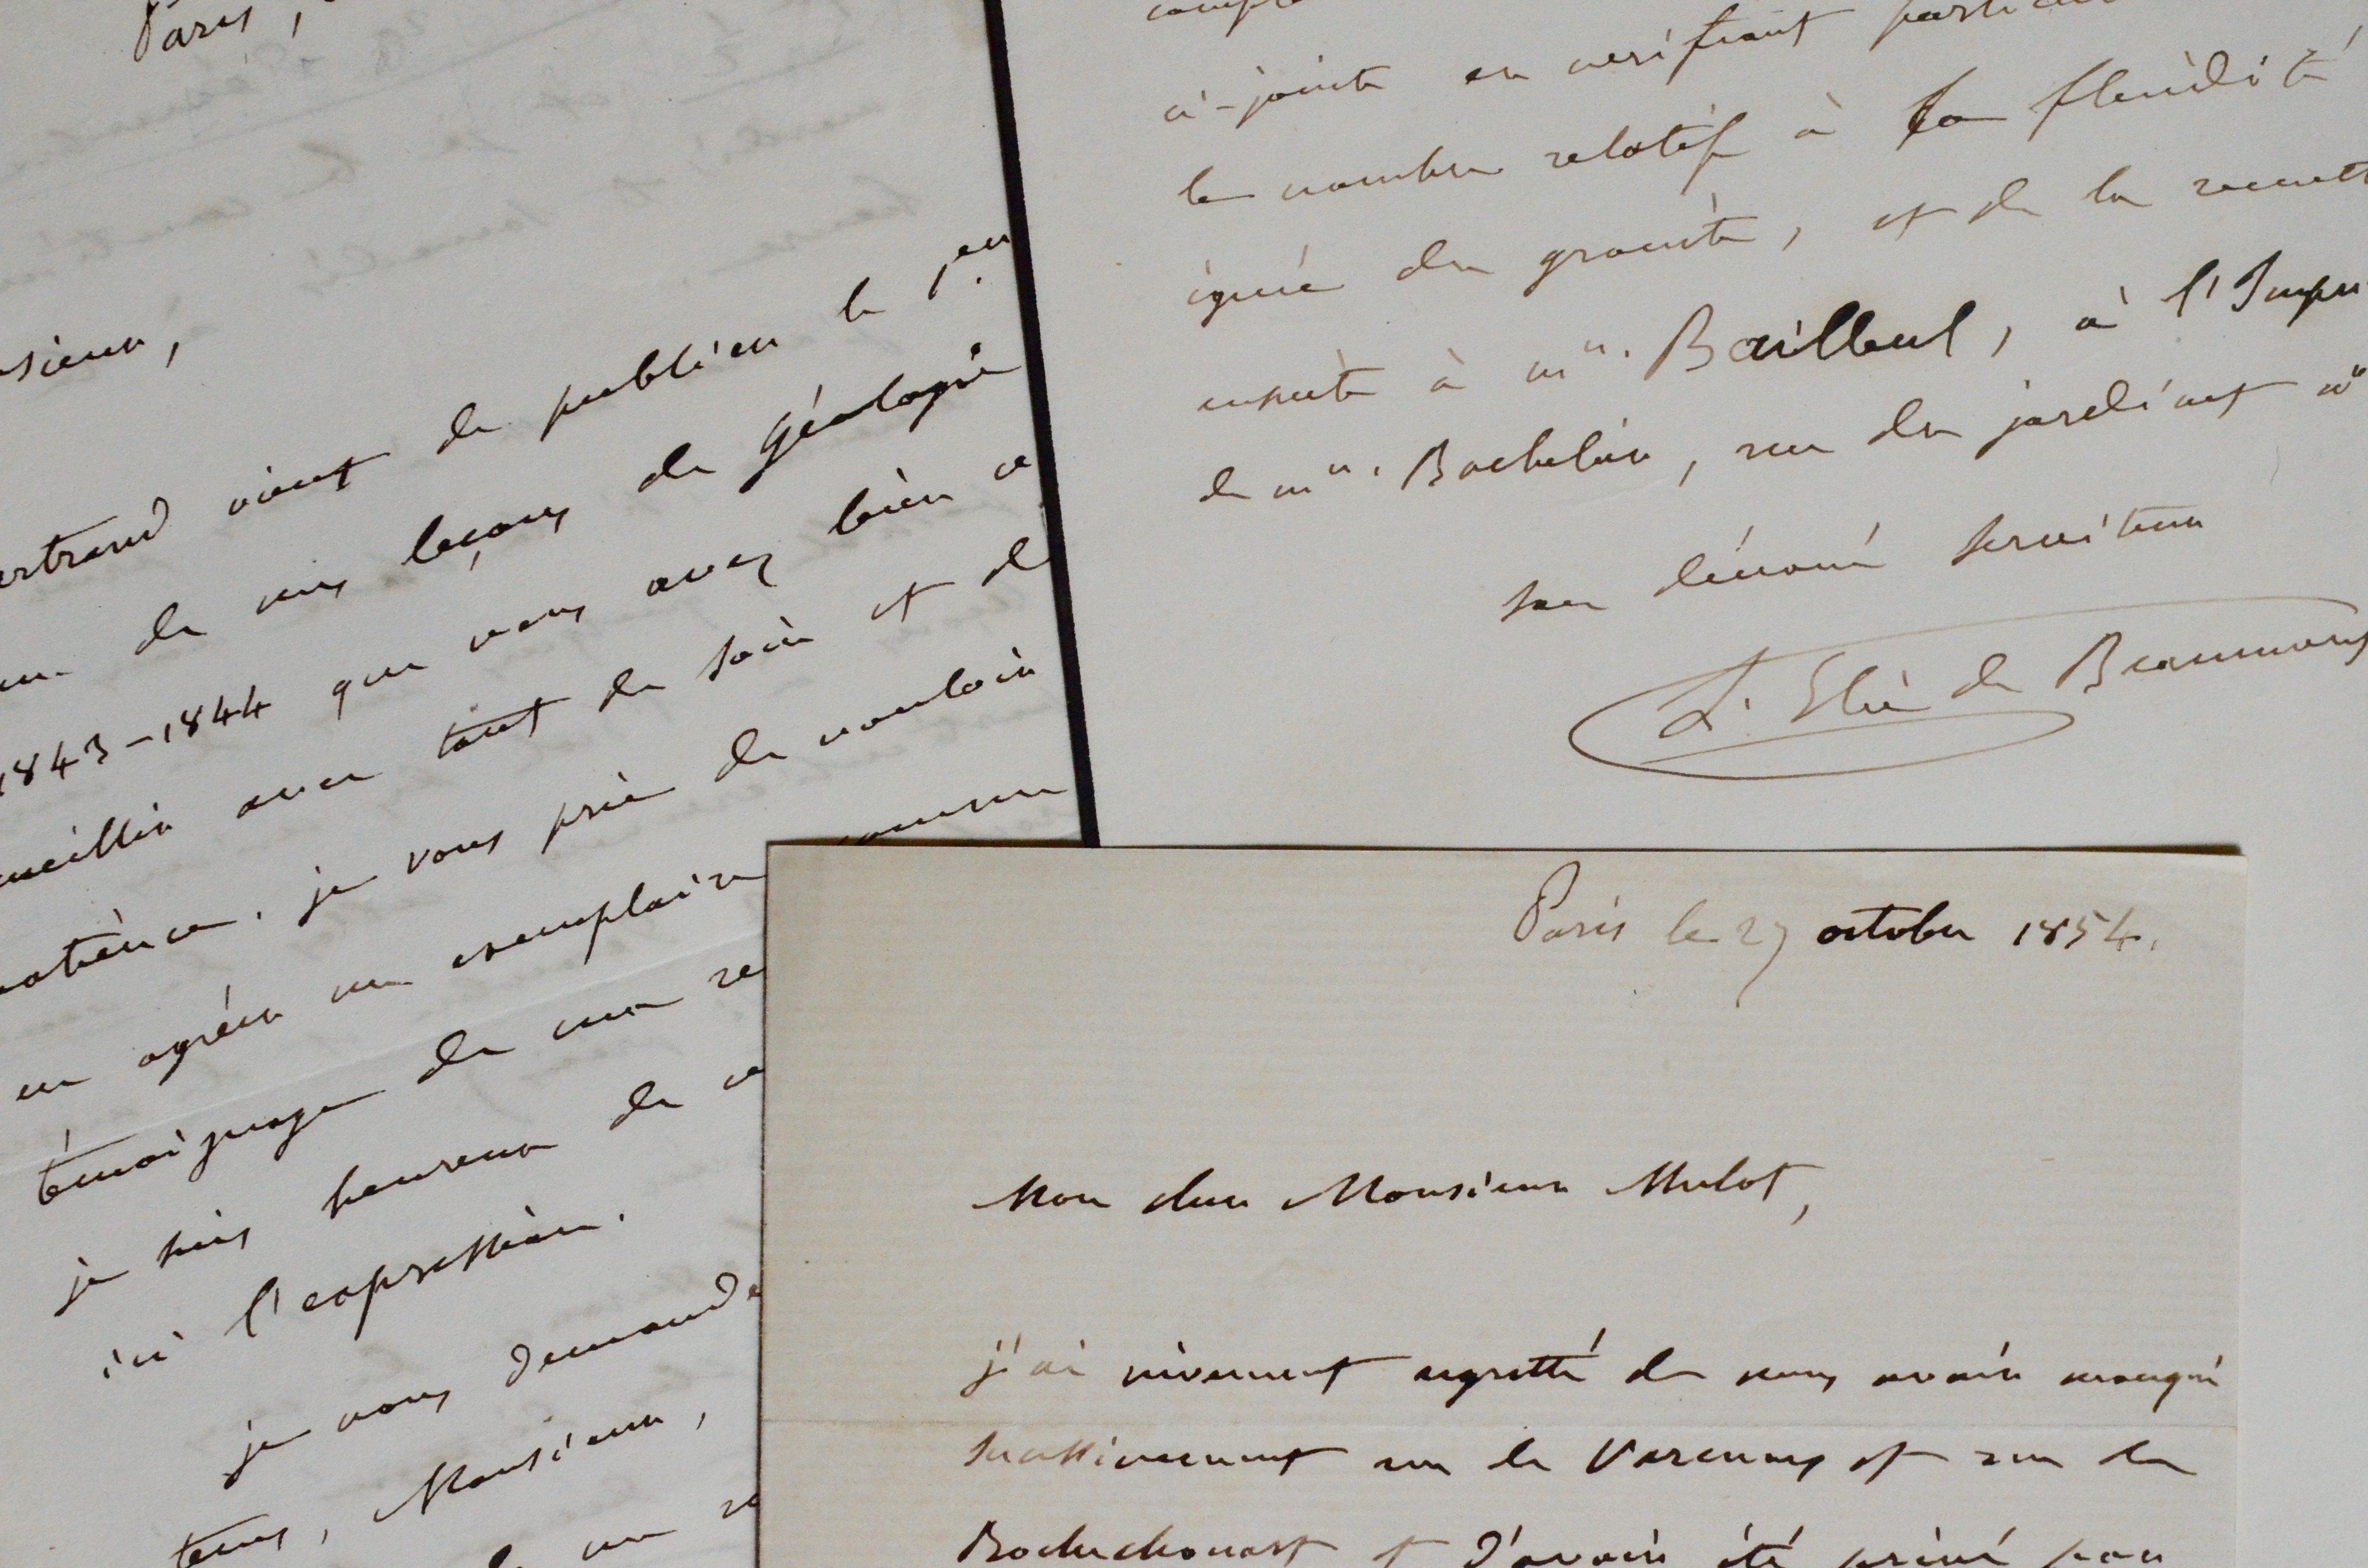 Paris,
sieur,
ertrand vient de publier le 1er
de mes leçons de géologie
1843-1844 que vous avez bien
ueillir avec tant de soin et de
patience. je vous prie de vouloir
en agréer un exemplaire comme
témoignage de ma re
je suis heureux de
ici l'expression.
je vous demande
tems, Monsieur,
ci-jointe en vérifiant
le nombre relatif à la fluidité
ignée du granite, et de la remett
ensuite à Mr. Bailleul, à l'Impri
de Mr. Bachelier, rue du jardinet no
son dévoué serviteur
L. Elie de Beaumont
Paris le 27 octobre 1854.
Mon cher Monsieur Mulot,
j'ai vivement regretté de vous avoir manqué
successivement rue de Varennes et rue de
Rochechouart et d'avoir été privé par